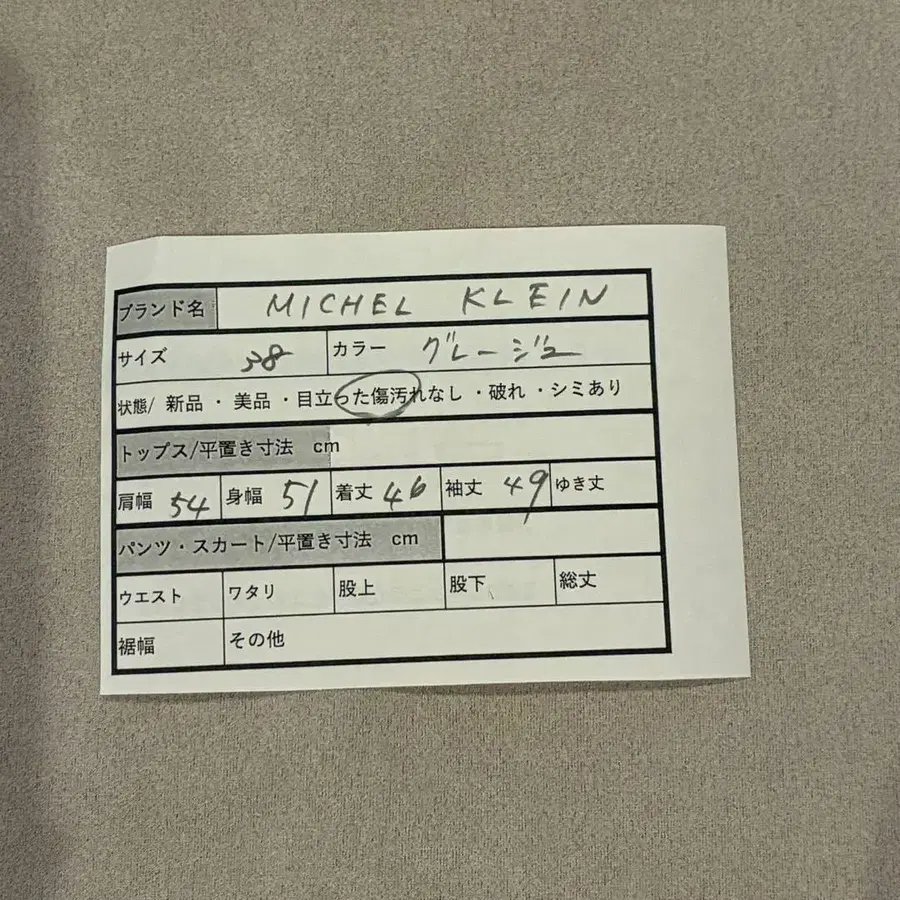 ブランド名 MICHEL KLEIN
サイズ 38 カラー グレージュ
状態/ 新品 ・ 美品 ・目立った傷汚れなし ・破れ ・シミあり
トップス/平置き寸法 cm
肩幅 54 身幅 51 着丈 46 袖丈 49 ゆき丈
パンツ・スカート/平置き寸法 cm
ウエスト ワタリ 股上 股下 総丈
裾幅 その他